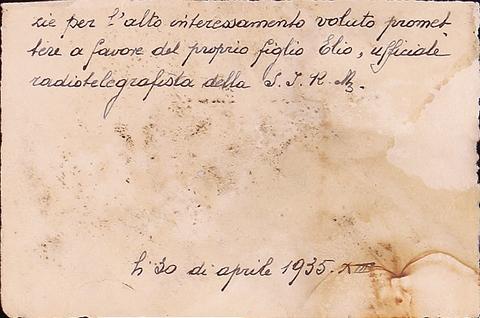 zie per l'alto interessamento voluto promet
tere a favore del proprio figlio Elio, ufficiale
radiotelegrafista della S. I. R. M.
li 30 di aprile 1935. XIII